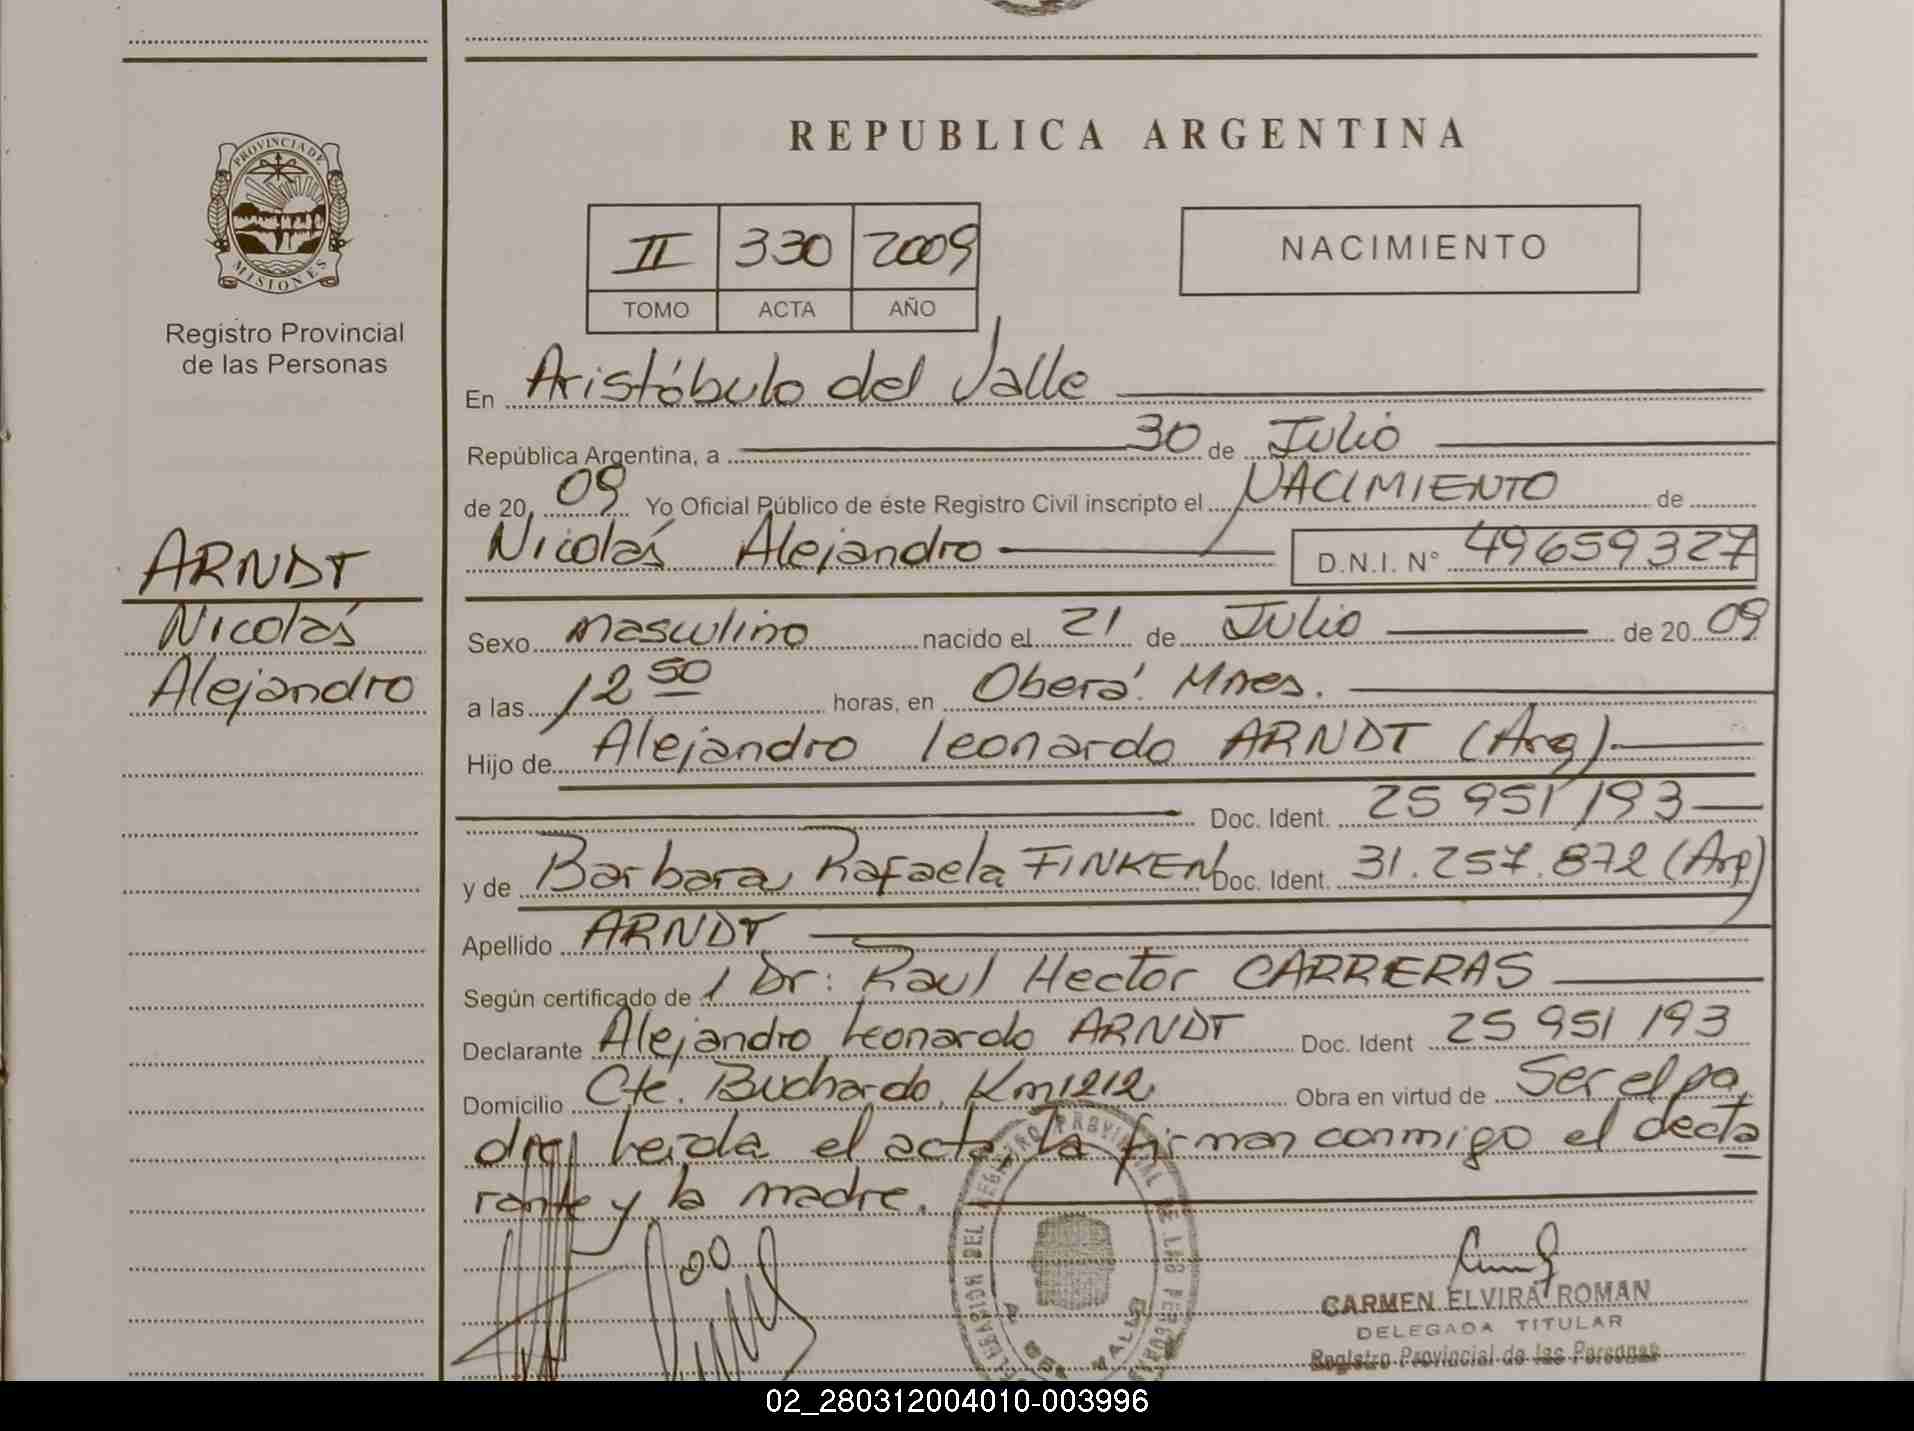 REPUBLICA ARGENTINA
PROVINCIA DE
MISIONES
Registro Provincial
de las Personas
II 330 2009
TOMO ACTA AÑO
NACIMIENTO
En Aristóbulo del Valle
República Argentina, a 30 de Julio
de 20 09 Yo Oficial Público de éste Registro Civil inscripto el NACIMIENTO de
Nicolás Alejandro D.N.I. N° 49659327
ARNDT
Nicolás
Alejandro
Sexo masculino nacido el 21 de Julio de 20 09
a las 12 50 horas, en Oberá. Mnes.
Hijo de Alejandro Leonardo ARNDT (Arg).
Doc. Ident. 25 951 193
y de Barbara Rafaela FINKEN Doc. Ident. 31.257.872 (Arg)
Apellido ARNDT
Según certificado de 1 Dr: Raul Hector CARRERAS
Declarante Alejandro Leonardo ARNDT Doc. Ident 25 951 193
Domicilio Cte. Buchardo, Km1212 Obra en virtud de Ser el pa
dre, leida el acta, la firman conmigo el decla
rante y la madre.
DELEGACION DEL REGISTRO PROVINCIAL DE LAS PERSONAS
A. DEL VALLE
CARMEN ELVIRA ROMAN
DELEGADA TITULAR
Registro Provincial de las Personas
02_280312004010-003996